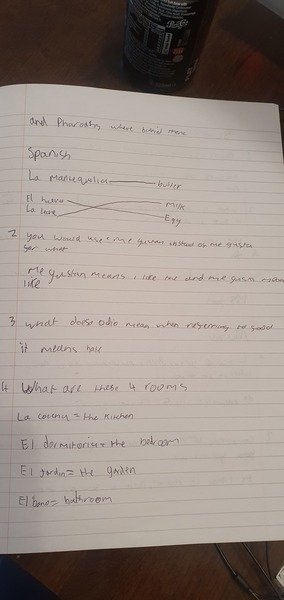 and Pharoahs where buried there
Spanish
La Mantequilla butter
El huevo Milk
La leche Egg
2 you would use me gustan instead of me gusta
for what
Me gustan means i like the and me gusta means
like
3 What does odio mean when referring to food
it means hate
4 What are these 4 rooms
La cocina = the kitchen
El dormitorio = the bedroom
El jardin = the garden
El bano = bathroom